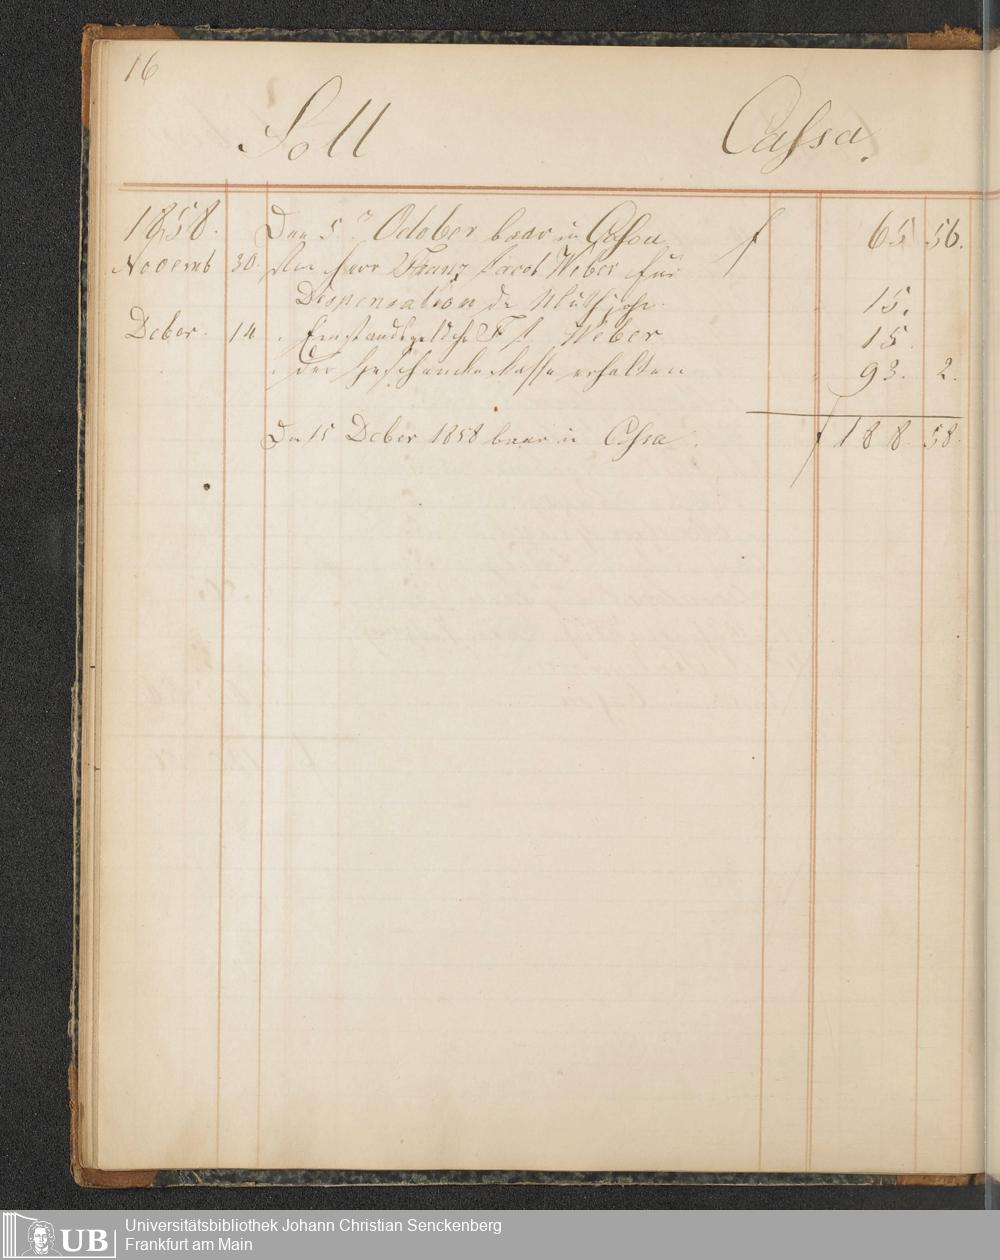 16
Soll Cassa.
1858. Den 5. October baar in Cassa f 65 56.
Novemb 30. Herr Franz Jacob Weber für
Dispensation der Muthjahre 15.
Deber. 14 Einstandsgeld F. J. Weber 15.
der Geschenke Kasse erhalten 93. 2.
Den 15 Deber 1858 baar in Cassa. f 188. 58.
UB
Universitätsbibliothek Johann Christian Senckenberg
Frankfurt am Main